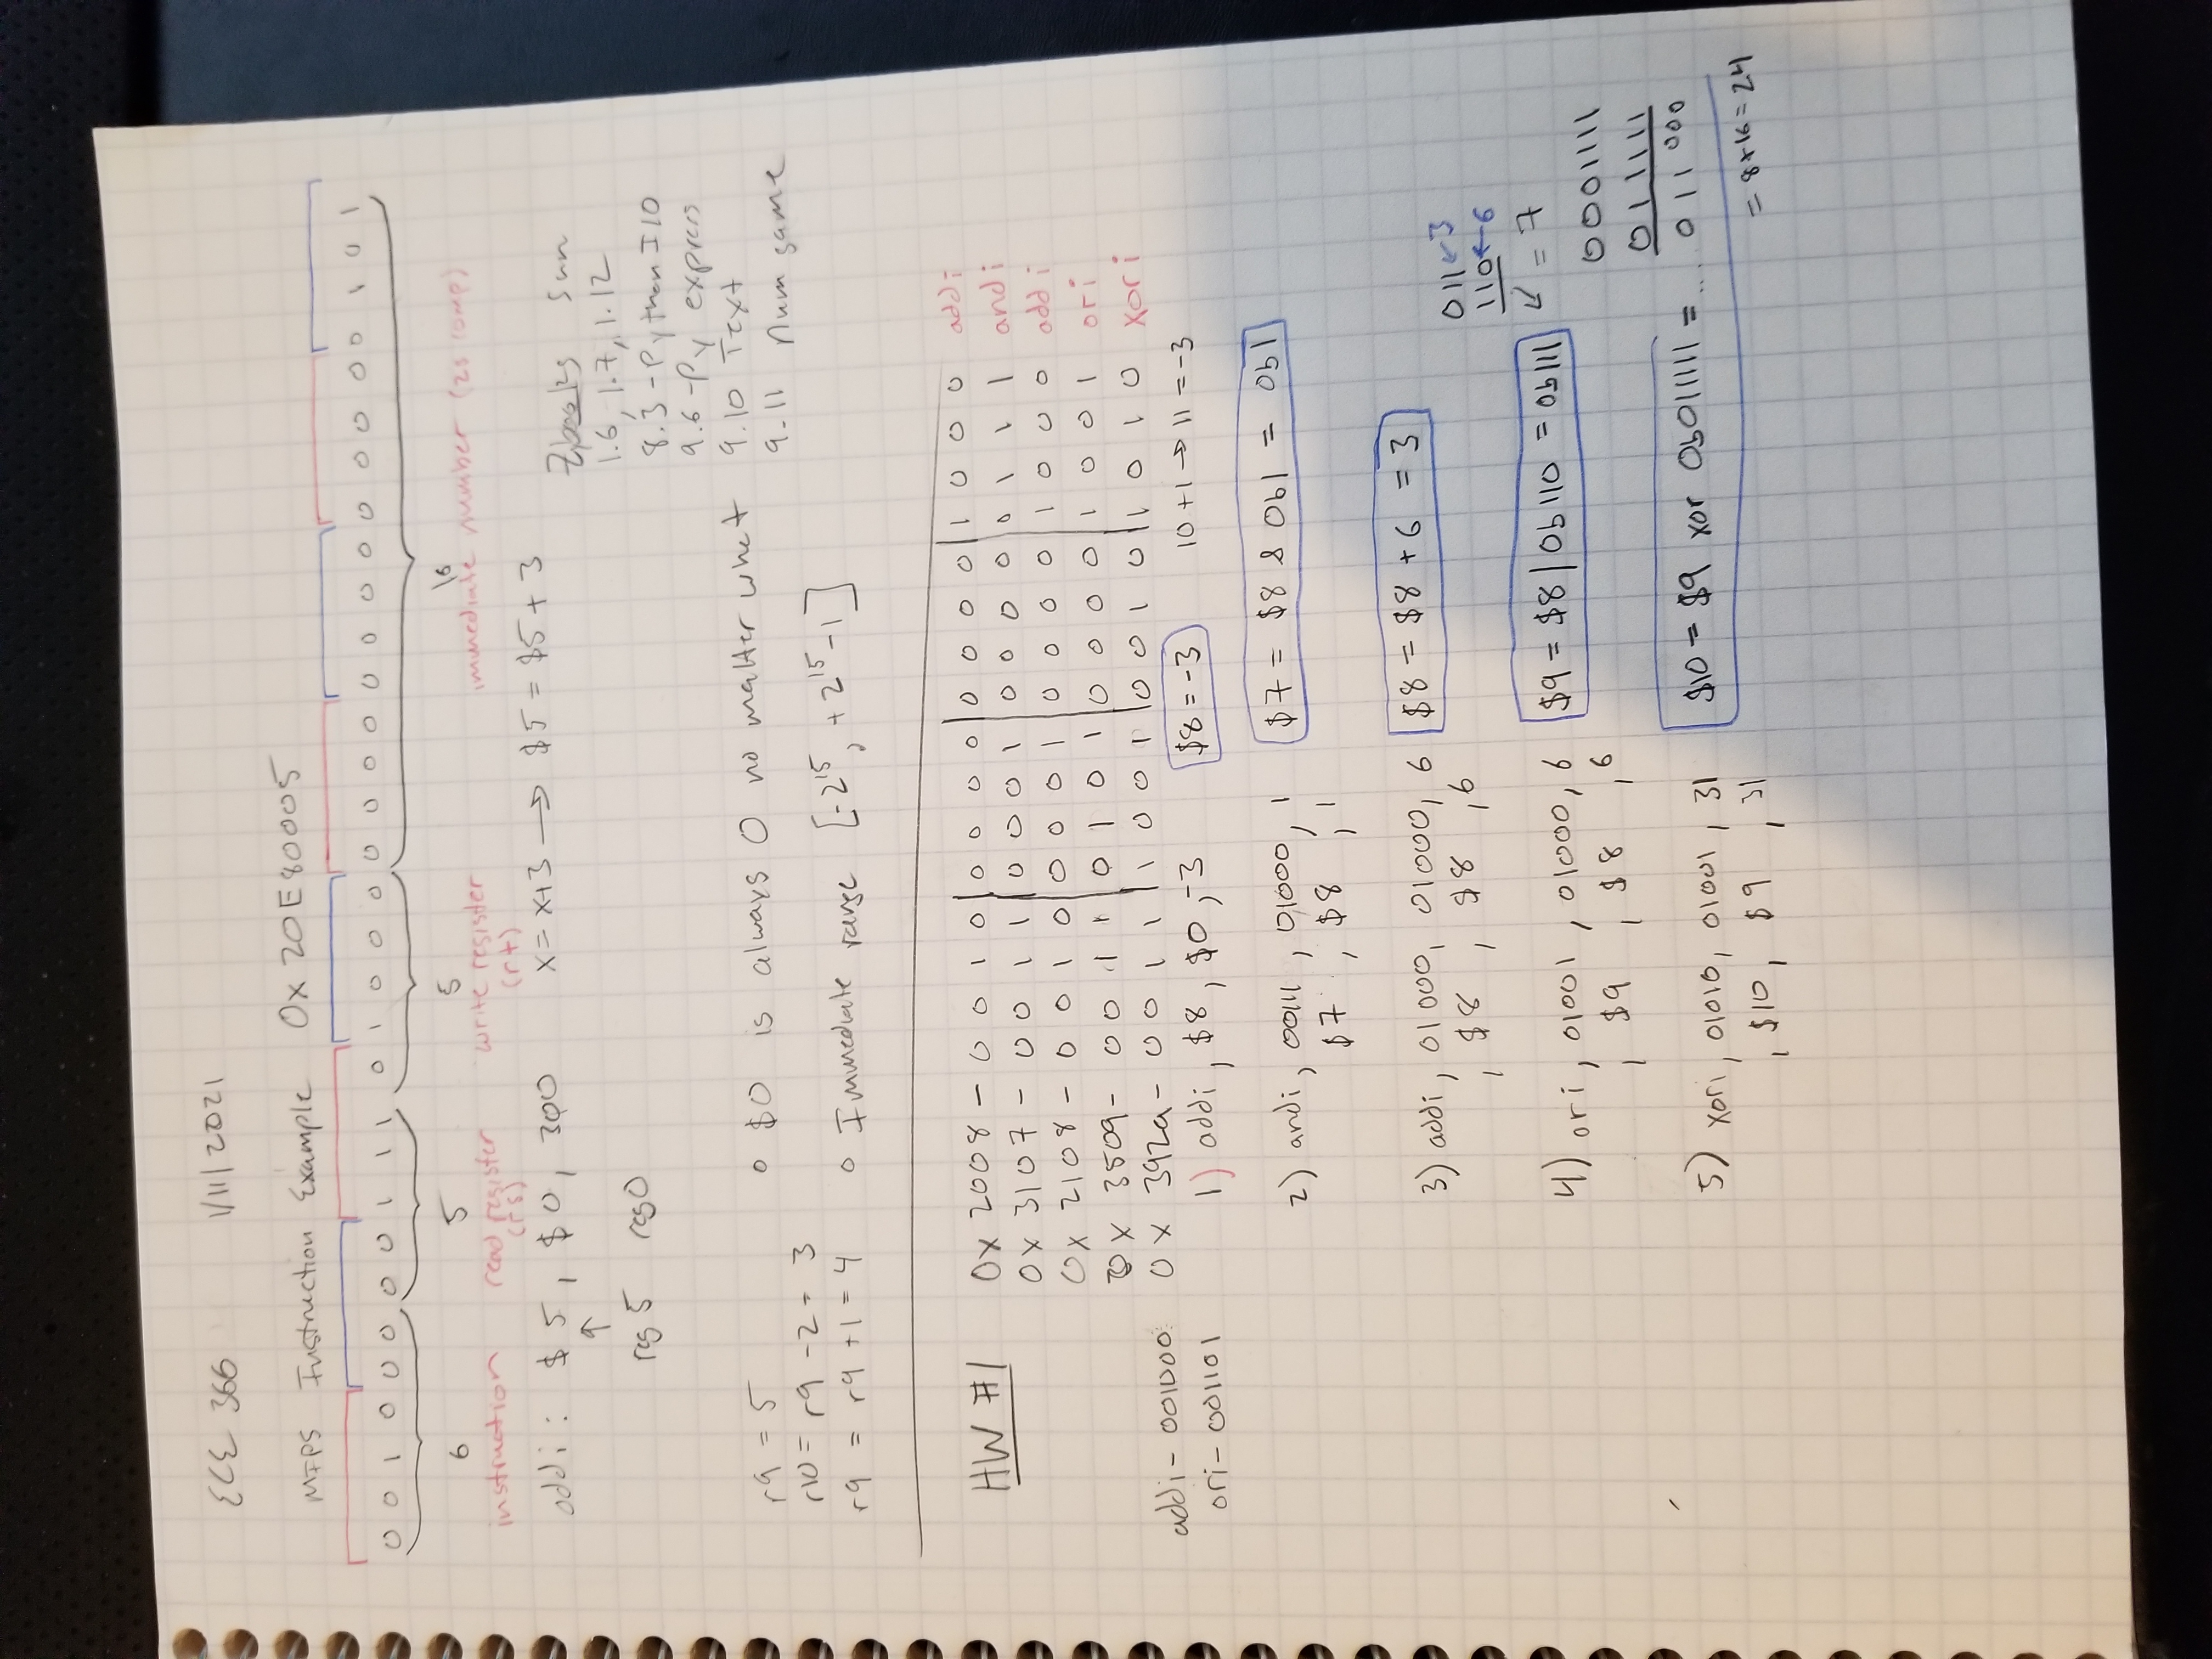 ECE 366 1/11/2021
MIPS Instruction Example 0x 20E80005
0 0 1 0 0 0 0 0 1 1 1 0 1 0 0 0 0 0 0 0 0 0 0 0 0 0 0 0 0 1 0 1
6 5 5 16
instruction read register write register immediate number (2s comp)
(rs) (rt)
addi: $5, $0, 300 x = x+3 → $5 = $5 + 3
↑
reg 5 reg 0
Zybooks Sun
1.6, 1.7, 1.12
8.3 - Python I/O
9.6 - Py express
9.10 Text
9.11 Num game
r9 = 5
r10 = r9 - 2 = 3
r9 = r9 + 1 = 4
o $0 is always 0 no matter what
o Immediate range [-2^15, +2^15 -1]
HW #1
0x 2008 - 0 0 1 0 | 0 0 0 0 | 0 0 0 0 | 1 0 0 0 addi
0x 3107 - 0 0 1 1 | 0 0 0 1 | 0 0 0 0 | 0 1 1 1 andi
0x 2108 - 0 0 1 0 | 0 0 0 1 | 0 0 0 0 | 1 0 0 0 addi
0x 3509 - 0 0 1 1 | 0 1 0 1 | 0 0 0 0 | 1 0 0 1 ori
0x 392a - 0 0 1 1 | 1 0 0 1 | 0 0 1 0 | 1 0 1 0 xori
addi - 001000
ori - 001101
1) addi, $8, $0, -3 $8 = -3 10 + 1 → 11 = -3
2) andi, 00111, 01000, 1 $7 = $8 & 0b1 = 0b1
$7, $8, 1
3) addi, 01000, 01000, 6 $8 = $8 + 6 = 3
, $8, $8, 6
011 ← 3
110 ← 6
↙ = 7
4) ori, 01001, 01000, 6 $9 = $8 | 0b110 = 0b111
, $9, $8, 6
0001111
011111
5) xori, 01010, 01001, 31 $10 = $9 xor 0b011111 = ... 011000
, $10, $9, 31
= 8+16 = 24